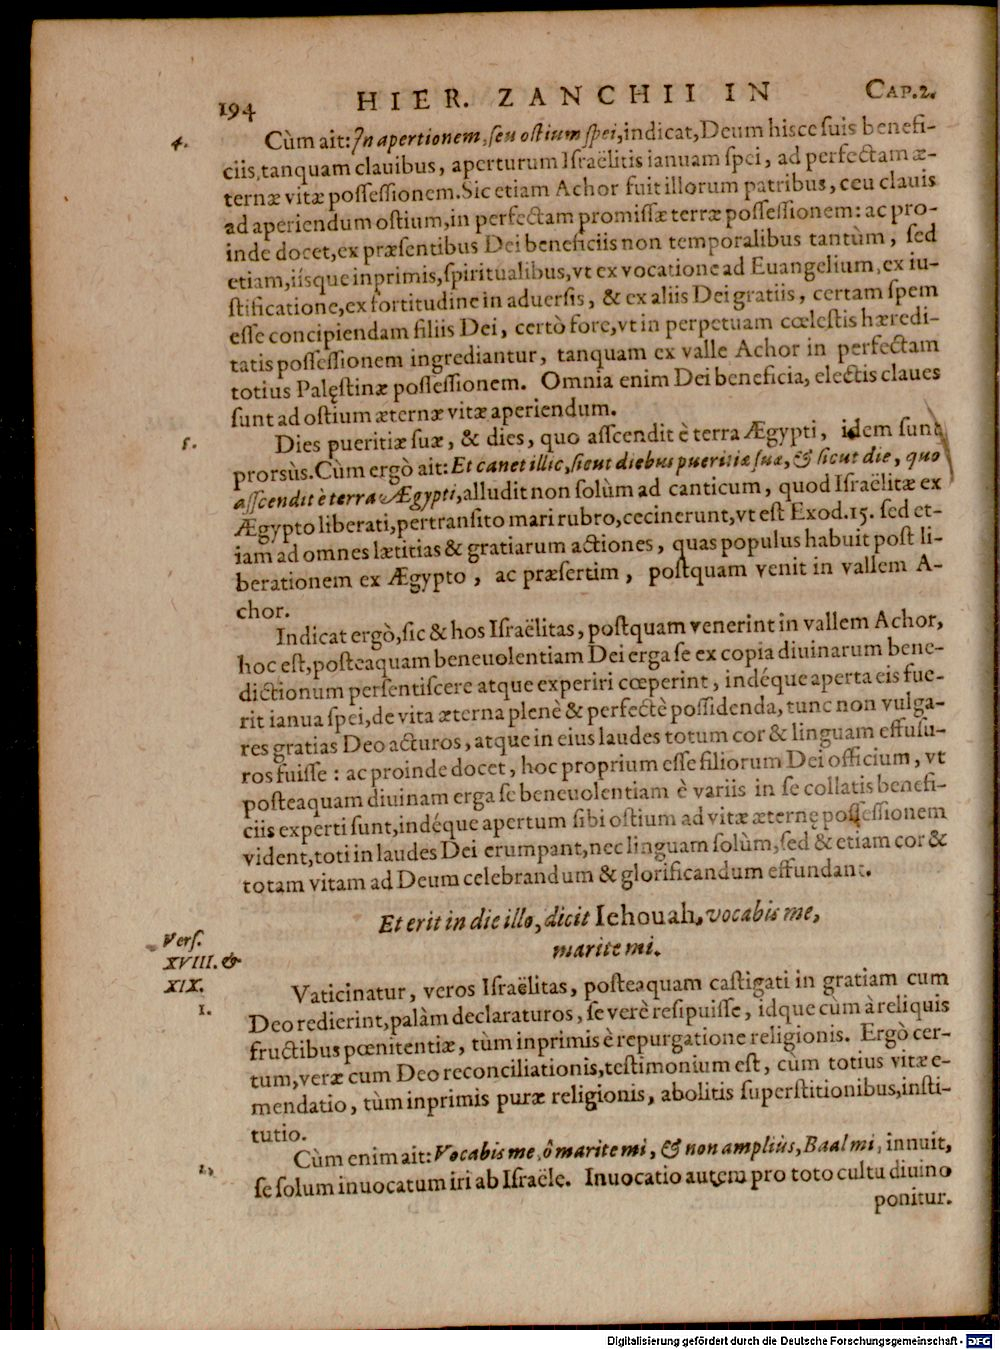 194 HIER. ZANCHII IN CAP.2.
4. Cùm ait: In apertionem, ſeu oſtium ſpei, indicat, Deum hisce ſuis benefi-
ciis, tanquam clauibus, aperturum Iſraëlitis ianuam ſpei, ad perfectam æ-
ternæ vitæ poſſeſſionem. Sic etiam Achor fuit illorum patribus, ceu clauis
ad aperiendum oſtium, in perfectam promiſſæ terræ poſſeſſionem: ac pro-
inde docet, ex præſentibus Dei beneficiis non temporalibus tantùm, ſed
etiam, iíſque inprimis, ſpiritualibus, vt ex vocatione ad Euangelium, ex iu-
ſtificatione, ex fortitudine in aduerſis, & ex aliis Dei gratiis, certam ſpem
eſſe concipiendam filiis Dei, certò fore, vt in perpetuam cœleſtis hæredi-
tatis poſſeſſionem ingrediantur, tanquam ex valle Achor in perfectam
totius Palęſtinæ poſſeſſionem. Omnia enim Dei beneficia, electis claues
ſunt ad oſtium æternæ vitæ aperiendum.
5. Dies pueritiæ ſuæ, & dies, quo aſſcendit è terra Ægypti, idem ſunt
prorsùs. Cùm ergò ait: Et canet illic, ſicut diebus pueritiæ ſuæ, & ſicut die, quo
aſſcendit è terra Ægypti, alludit non ſolùm ad canticum, quod Iſraëlitæ ex
Ægypto liberati, pertranſito mari rubro, cecinerunt, vt eſt Exod.15. ſed et-
iam ad omnes lætitias & gratiarum actiones, quas populus habuit poſt li-
berationem ex Ægypto, ac præſertim, poſtquam venit in vallem A-
chor.
Indicat ergò, ſic & hos Iſraëlitas, poſtquam venerint in vallem Achor,
hoc eſt, poſteaquam beneuolentiam Dei erga ſe ex copia diuinarum bene-
dictionum perſentiſcere atque experiri cœperint, indéque aperta eis fue-
rit ianua ſpei, de vita æterna plenè & perfectè poſſidenda, tunc non vulga-
res gratias Deo acturos, atque in eius laudes totum cor & linguam effuſu-
ros fuiſſe: ac proinde docet, hoc proprium eſſe filiorum Dei officium, vt
poſteaquam diuinam erga ſe beneuolentiam è variis in ſe collatis benefi-
ciis experti ſunt, indéque apertum ſibi oſtium ad vitæ æternę poſſeſſionem
vident, toti in laudes Dei erumpant, nec linguam ſolùm, ſed & etiam cor &
totam vitam ad Deum celebrandum & glorificandum effundant.
Et erit in die illo, dicit Iehouah, vocabis me,
marite mi.
Verſ.
XVIII. &
XIX.
1. Vaticinatur, veros Iſraëlitas, poſteaquam caſtigati in gratiam cum
Deo redierint, palàm declaraturos, ſe verè reſipuiſſe, idque cùm à reliquis
fructibus pœnitentiæ, tùm inprimis è repurgatione religionis. Ergò cer-
tum, veræ cum Deo reconciliationis, teſtimonium eſt, cùm totius vitæ e-
mendatio, tùm inprimis puræ religionis, abolitis ſuperſtitionibus, inſti-
tutio.
2. Cùm enim ait: Vocabis me, ô marite mi, & non ampliùs, Baal mi, innuit,
ſe ſolum inuocatum iri ab Iſraële. Inuocatio autem pro toto cultu diuino
ponitur.
Digitalisierung gefördert durch die Deutsche Forschungsgemeinschaft - DFG